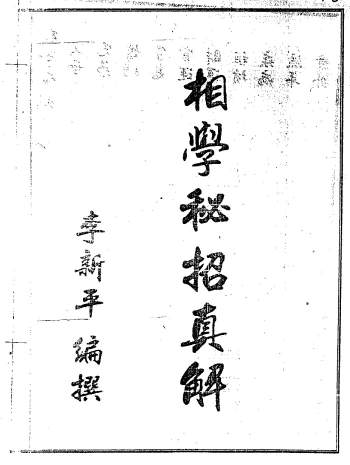 相學秘招真解
李新平 編撰